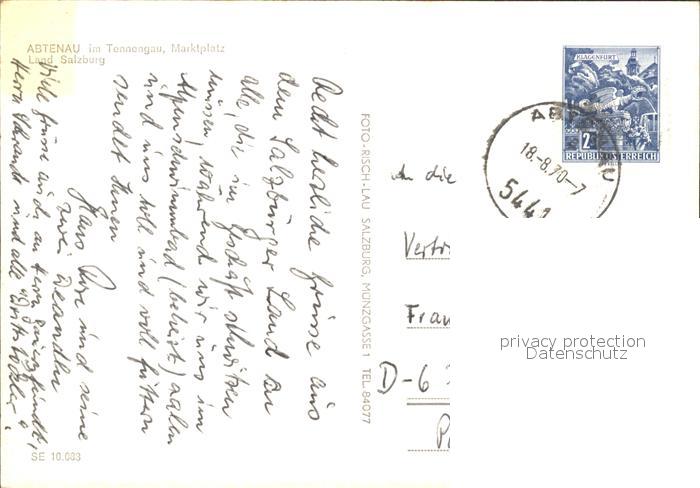 ABTENAU im Tennengau, Marktplatz
Land Salzburg
Recht herzliche Grüsse aus
dem Salzburger Land an
alle, die im Geschäft schwitzen
müssen, während wir uns im
Alpenschwimmbad (beheizt) aalen
und uns toll und voll futtern
sendet Ihnen
Hans und seine
zwei
Viele Grüsse auch an Herrn
Herrn und alle
SE 10.083
FOTO-RISCH-LAU SALZBURG, MÜNZGASSE 1 TEL. 84077
KLAGENFURT
2
REPUBLIK ÖSTERREICH
18.-8.70-7
An die
Vertri
Frau
D-6
privacy protection
Datenschutz